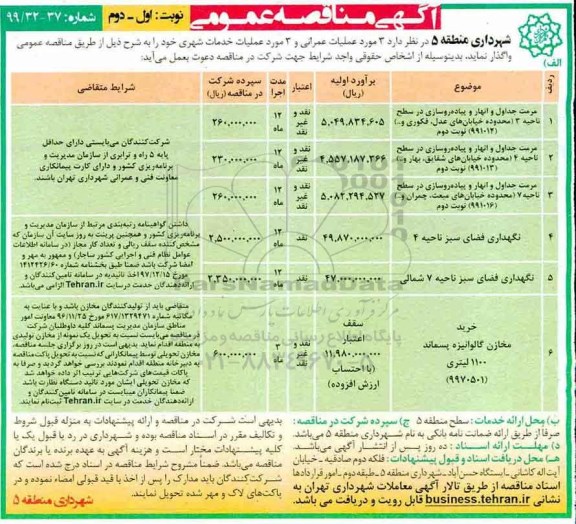 آگهی مناقصه عمومی
نوبت: اول ـ دوم
شماره: ۳۷-۹۹/۳۲
شهرداری منطقه ۵ در نظر دارد ۳ مورد عملیات عمرانی و ۳ مورد عملیات خدمات شهری خود را به شرح ذیل از طریق مناقصه عمومی
واگذار نماید، بدینوسیله از اشخاص حقوقی واجد شرایط جهت شرکت در مناقصه دعوت بعمل می‌آید:
الف)
ردیف
موضوع
برآورد اولیه (ریال)
اعتبار
مدت اجرا
سپرده شرکت در مناقصه (ریال)
شرایط متقاضی
۱
مرمت جداول و انهار و پیاده‌روسازی در سطح
ناحیه ۳ (محدوده خیابان‌های عدل، فکوری و..)
(۹۹۱-۱۲) نوبت دوم
۵,۰۴۹,۸۳۴,۶۰۵
نقد و غیر نقد
۱۲ ماه
۲۶۰,۰۰۰,۰۰۰
۲
مرمت جداول و انهار و پیاده‌روسازی در سطح
ناحیه ۴ (محدوده خیابان‌های شقایق، بهار و..)
(۹۹۱-۱۳) نوبت دوم
۴,۵۵۷,۱۸۷,۳۶۶
نقد و غیر نقد
۱۲ ماه
۲۳۰,۰۰۰,۰۰۰
۳
مرمت جداول و انهار و پیاده‌روسازی در سطح
ناحیه ۷ (محدوده خیابان‌های مبعث، چمران و..)
(۹۹۱-۱۶) نوبت دوم
۵,۰۸۲,۲۹۴,۵۲۷
نقد و غیر نقد
۱۲ ماه
۲۶۰,۰۰۰,۰۰۰
شرکت‌کنندگان می‌بایستی دارای حداقل
پایه ۵ راه و ترابری از سازمان مدیریت و
برنامه‌ریزی کشور و دارای کارت پیمانکاری
معاونت فنی و عمرانی شهرداری تهران باشند.
۴
نگهداری فضای سبز ناحیه ۴
۴۹,۸۷۰,۰۰۰,۰۰۰
نقد
۱۲ ماه
۲,۵۰۰,۰۰۰,۰۰۰
۵
نگهداری فضای سبز ناحیه ۷ شمالی
۴۷,۰۰۰,۰۰۰,۰۰۰
نقد
۱۲ ماه
۲,۳۵۰,۰۰۰,۰۰۰
داشتن گواهینامه رتبه‌بندی مرتبط از سازمان مدیریت و
برنامه‌ریزی کشور و همچنین پرینت به روز سایت آن سازمان که
مشخص‌کننده سقف ریالی و تعداد کار مجاز (در سامانه اطلاعات
عوامل نظام فنی و اجرایی کشور ساجار) و ممهور به مهر و
امضا شرکت باشد ضمنا طبق بخشنامه شماره
مورخ ۹۷/۱۲/۱۵ اخذ تائیدیه در سامانه تامین‌کنندگان و
ارائه‌دهندگان خدمت درسایت Tehran.ir الزامی می‌باشد.
۶
خرید
مخازن گالوانیزه پسماند
۱۱۰۰ لیتری
(۹۹۷۰۵۰۱)
سقف
اعتبار
۱۱,۹۸۰,۰۰۰,۰۰۰
(با احتساب
ارزش افزوده)
نقد و غیر نقد
۳ ماه
۶۰۰,۰۰۰,۰۰۰
متقاضی باید از تولیدکنندگان مخازن باشد و با عنایت به
مکاتبه شماره ۶۱۷/۱۳۲۹۴۷۱ مورخ ۹۶/۱۱/۲۵ معاونت امور
مناطق سازمان مدیریت پسماند کلیه داوطلبان شرکت
در مناقصه می‌بایست نسبت به تحویل یک نمونه از مخازن تولیدی
به منطقه اقدام نماید. بدیهی است در روز برگزاری جلسه مناقصه،
مخازن تحویلی توسط پیمانکارانی که نسبت به تحویل پاکت مناقصه
به دبیرخانه منطقه اقدام نمودند بررسی خواهد گردید و صرفا به
پاکات قیمت شرکت‌هایی ترتیب اثر داده خواهد شد
که مخازن تحویلی ایشان مورد تائید دستگاه نظارت باشد
ضمنا پیمانکاران می‌بایست در سامانه تامین‌کنندگان و
ارائه‌دهندگان خدمت در سایت Tehran.ir ثبت‌نام نمایند.
ب) محل ارائه خدمات: سطح منطقه ۵ ج) سپرده شرکت در مناقصه:
صرفا از طریق ارائه ضمانت نامه بانکی به نام شهرداری منطقه ۵ می‌باشد.
د) مهلت ارائه اسناد: ده روز پس از انتشار آگهی می‌باشد.
هـ) محل دریافت اسناد و قبول پیشنهادات: فلکه دوم صادقیه ـ خیابان
آیت‌اله کاشانی ـ ایستگاه حسن‌آباد ـ شهرداری منطقه ۵ ـ طبقه دوم ـ امور قراردادها
اسناد مناقصه از طریق تالار آگهی معاملات شهرداری تهران به
نشانی business.tehran.ir قابل رویت و دریافت می باشد.
بدیهی است شرکت در مناقصه و ارائه پیشنهادات به منزله قبول شروط
و تکالیف مقرر در اسناد مناقصه بوده و شهرداری در رد یا قبول یک یا
کلیه پیشنهادات مختار است و هزینه آگهی به عهده برنده یا برندگان
مناقصه می‌باشد. ضمناً مشروح شرایط مناقصه در اسناد درج شده است که
شرکت‌کنندگان باید مدارک را پس از اخذ با قید قبولی امضاء نموده و در
پاکت‌های لاک و مهر شده تحویل نمایند.
شهرداری منطقه ۵